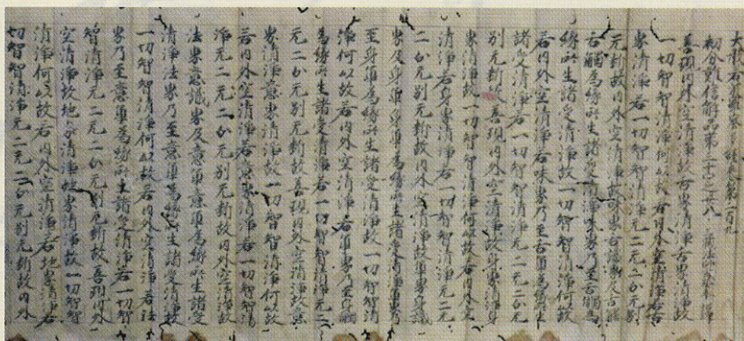 大般若波羅蜜多經卷第二百九
初分難信解品第三十四之廿八
善現內外空清淨故舌界清淨舌界清淨故
一切智智清淨何以故若內外空清淨若舌
界清淨若一切智智清淨无二无二分无別
无斷故內外空清淨故味界舌識界及舌觸
舌觸為緣所生諸受清淨味界乃至舌觸為
緣所生諸受清淨故一切智智清淨何以故
若內外空清淨若味界乃至舌觸為緣所生
諸受清淨若一切智智清淨无二无二分无
別无斷故善現內外空清淨故身界清淨身
界清淨故一切智智清淨何以故若內外空
清淨若身界清淨若一切智智清淨无二无
二分无別无斷故內外空清淨故觸界身識
界及身觸身觸為緣所生諸受清淨觸界乃
至身觸為緣所生諸受清淨故一切智智清
淨何以故若內外空清淨若觸界乃至身觸
為緣所生諸受清淨若一切智智清淨无二
无二分无別无斷故善現內外空清淨故意
界清淨意界清淨故一切智智清淨何以故
若內外空清淨若意界清淨若一切智智清
淨无二无二分无別无斷故內外空清淨故
法界意識界及意觸意觸為緣所生諸受
清淨法界乃至意觸為緣所生諸受清淨故
一切智智清淨何以故若內外空清淨若法
界乃至意觸為緣所生諸受清淨若一切智
智清淨无二无二分无別无斷故善現內外
空清淨故地界清淨地界清淨故一切智智
清淨何以故若內外空清淨若地界清淨若一
切智智清淨无二无二分无別无斷故內外